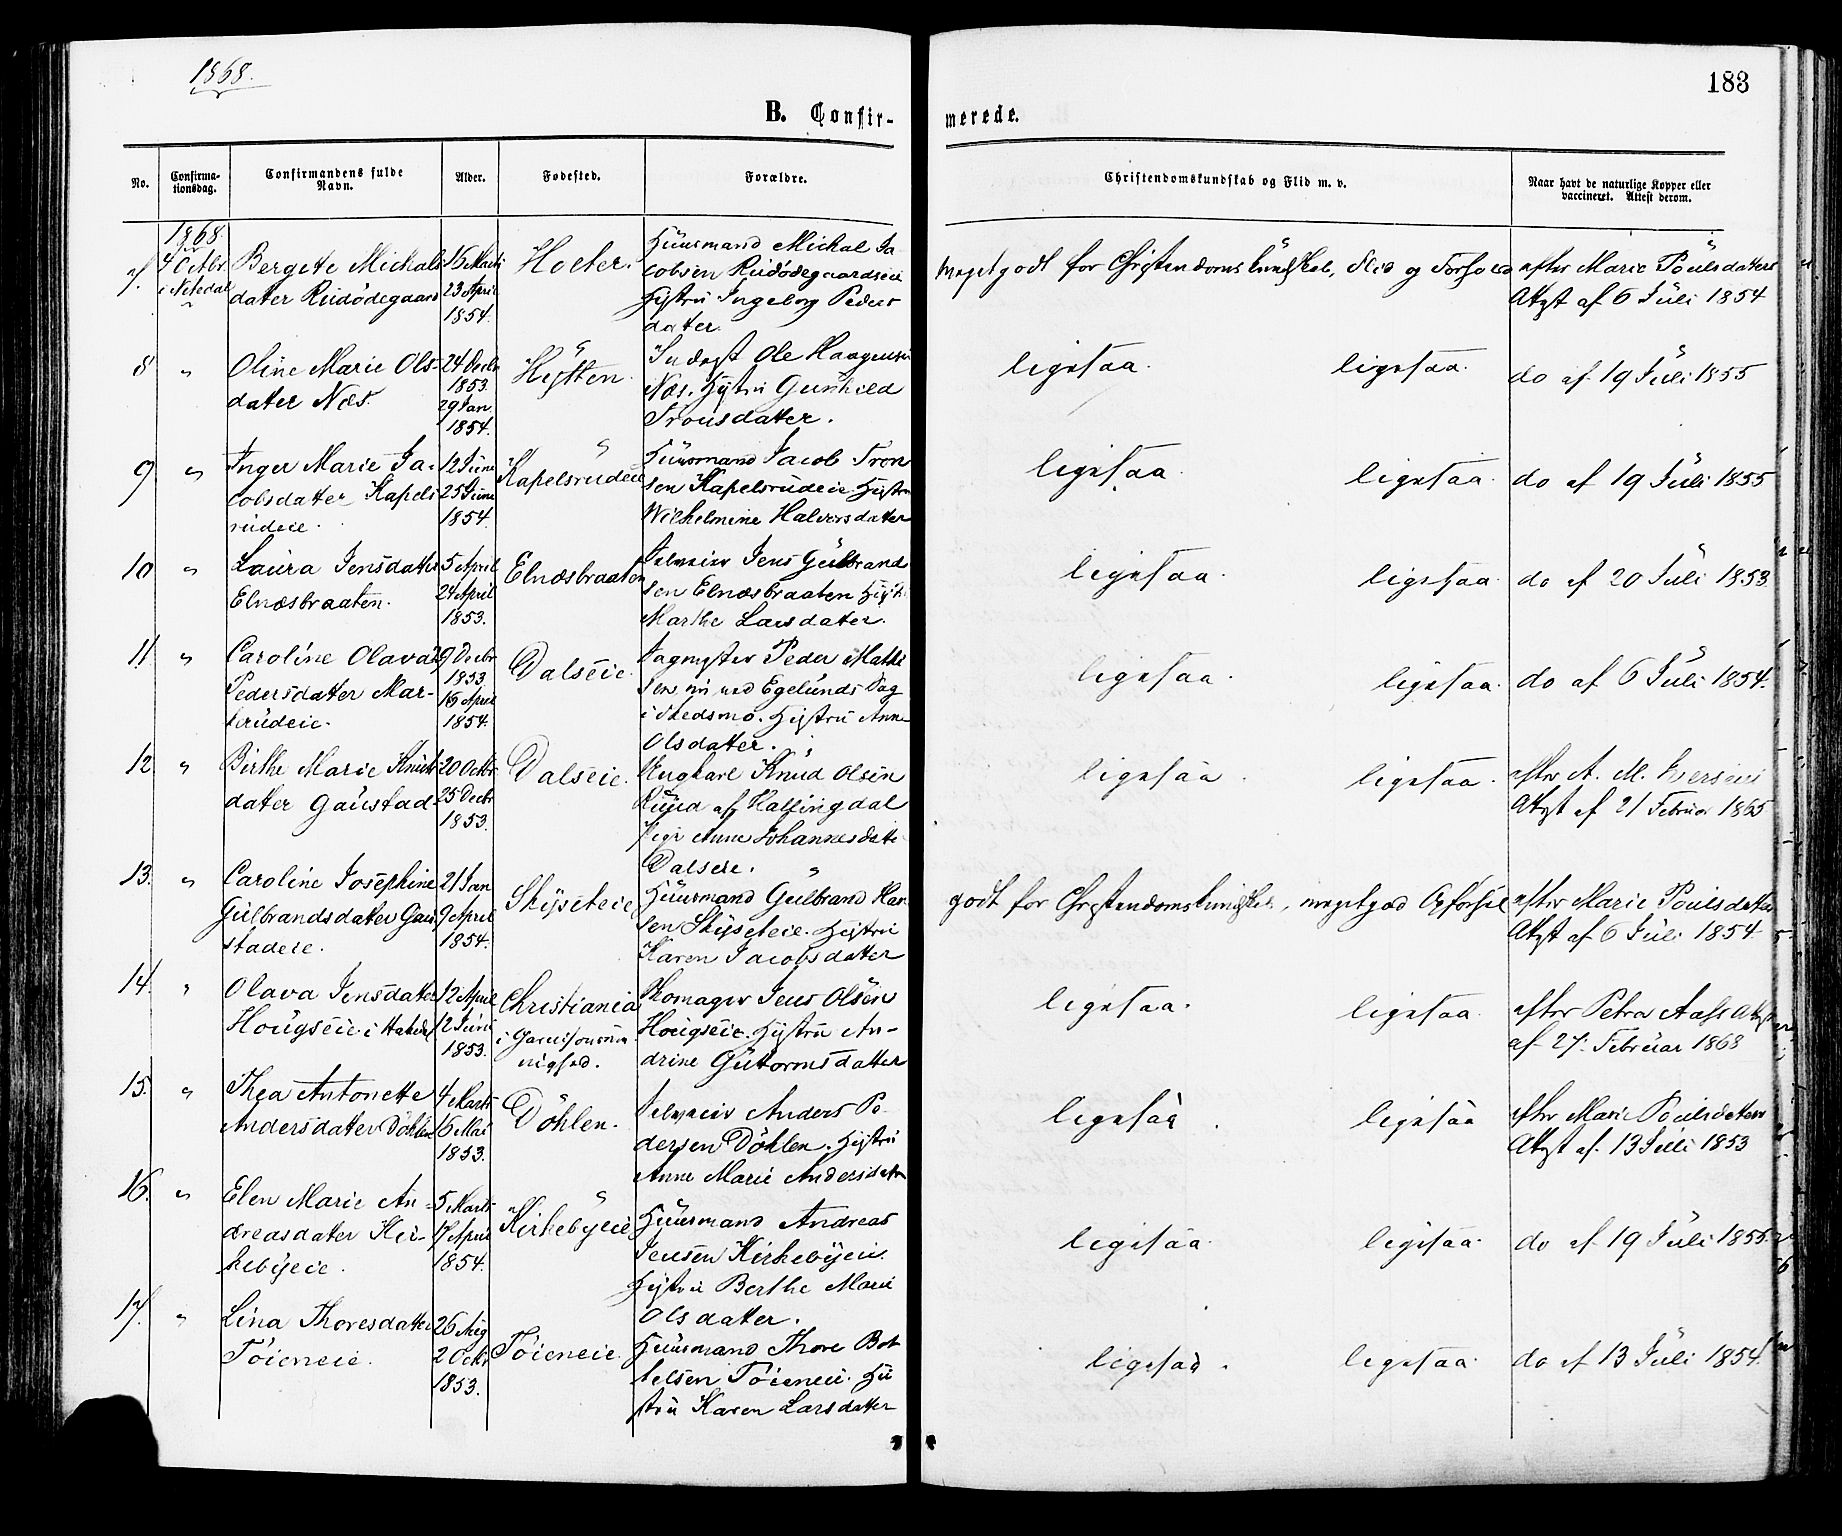 1868.
183
B. Confir-
merede.
No.
Confirma-
tionsdag.
Confirmandens fulde
Navn.
Alder.
Fødested.
Forældre.
Christendomskundskab og Flid m. v.
Naar havt de naturlige Kopper eller
vaccineret. Attest derom.
7.
1868.
4 Octbr
i Nitedal
Bergete Michals
dater Rudødegaard
16 Marts
23 April
1854.
Holter.
Huusmand Michal Ja
cobsen Rudødegaardseie
Hustru Ingeborg Peders
dater.
meget godt for Christendomskundskab, Flid og Forhold
efter Marie Poulsdaters
Attest af 6 Juli 1854
8
"
Oline Marie Ols-
dater Næs.
24 Decbr
1853.
29 Jan
1854.
Hytten.
Inderst Ole Haagensen
Næs. Hustru Gunhild
Tronsdatter.
ligesaa.
ligesaa.
do af 19 Juli 1855
9
"
Inger Marie Ja-
cobsdatter Kapels
rudeie.
12 June
25 June
1854.
Kapelsrudeie
Huusmand Jacob Tron
sen Kapelsrudeie. Hustru
Wilhelmine Halvorsdatter
ligesaa.
ligesaa.
do af 19 Juli 1855
10
"
Laura Jensdatter
Elnæsbraaten.
5 April
24 April
1853.
Elnæsbraaten
Selveier Jens Gulbrand
sen Elnæsbraaten
Marthe Larsdatter.
ligesaa.
ligesaa.
do af 20 Juli 1853
11.
"
Caroline Olava
Pedersdater Mar-
trudeie.
9 Decbr
1853.
16 April
1854.
Dalseie.
Sagmester Peder Mathi
sen nu ved Egelunds Sag
i Skedsmo. Hustru Anne
Olsdatter.
ligesaa.
ligesaa.
do af 6 Juli 1854.
12
"
Birthe Marie Knuds
dater Gaustad.
20 Octbr.
25 Decbr
1853.
Dalseie.
Ungkarl Knud Olsen
Ruud af Hallingdal
Pige Anne Johannesdatter
Dalseie.
ligesaa.
ligesaa.
efter A. M. Iversens
Attest af 21 Februar 1865
13.
"
Caroline Josephine
Gulbrandsdater Gau
stadeie.
21 Jan
9 April
1854.
Skyseteie
Huusmand Gulbrand Han
sen Skyseteie. Hustru
Karen Jacobsdatter
godt for Christendomskundskab, meget god Opførsel
efter Marie Poulsdaters
Attest af 6 Juli 1854
14.
"
Olava Jensdater
Hougseie i
12 April
12 Juni
1853.
Christiania
i Garnisonsme
nighed.
Skomager Jens Olsen
Hougseie. Hustru An-
drine Guttormsdatter
ligesaa.
ligesaa.
efter Petra Aass Attest
af 27. Februar 1868
15.
"
Thea Antonette
Andersdater Døhlen
4 Marts
16 Mai
1853.
Døhlen.
Selveier Anders Pe-
dersen Døhlen. Hustru
Anne Marie Andersdatter
ligesaa.
ligesaa
efter Marie Poulsdaters
Attest af 13 Juli 1853
16.
"
Elen Marie An-
dreasdater Kir-
kebyeie.
5 Marts
17 April
1854.
Kirkebyeie
Huusmand Andreas
Jensen Kirkebyeie.
Hustru Berthe Marie
Olsdatter.
ligesaa.
ligesaa.
do af 19 Juli 1855.
17.
"
Lina Thoresdatter
Tøieneie.
26 Aug
2 Octbr
1853.
Tøieneie.
Huusmand Thore Bot
telsen Tøieneie. Hu
stru Karen Larsdatter
ligesaa.
ligesaa.
do af 13 Juli 1854.